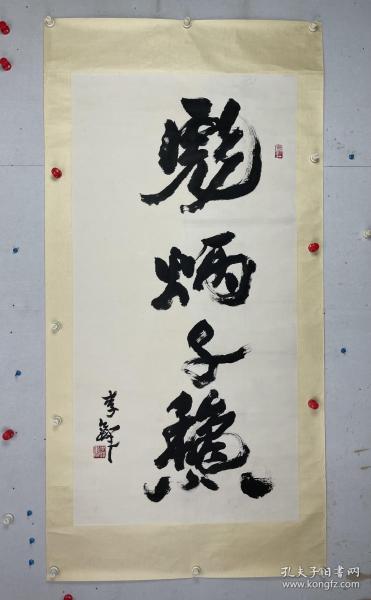 彪炳千骥
李铎
孔夫子旧书网
www.kongfz.com